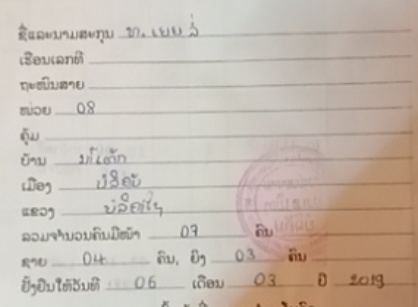 ຊື່ແລະນາມສະກຸນ ທ. ເຍຍ ລໍ່
ເຮືອນເລກທີ
ຖະໜົນສາຍ
ໜ່ວຍ 08
ຄຸ້ມ
ບ້ານ
ເມືອງ
ແຂວງ ບໍລິຄຳໄຊ
ລວມຈຳນວນຄົນມີໜ້າ 07 ຄົນ
ຊາຍ 04 ຄົນ, ຍິງ 03 ຄົນ
ຢັ້ງຢືນໃຫ້ວັນທີ 06 ເດືອນ 03 ປີ 2019